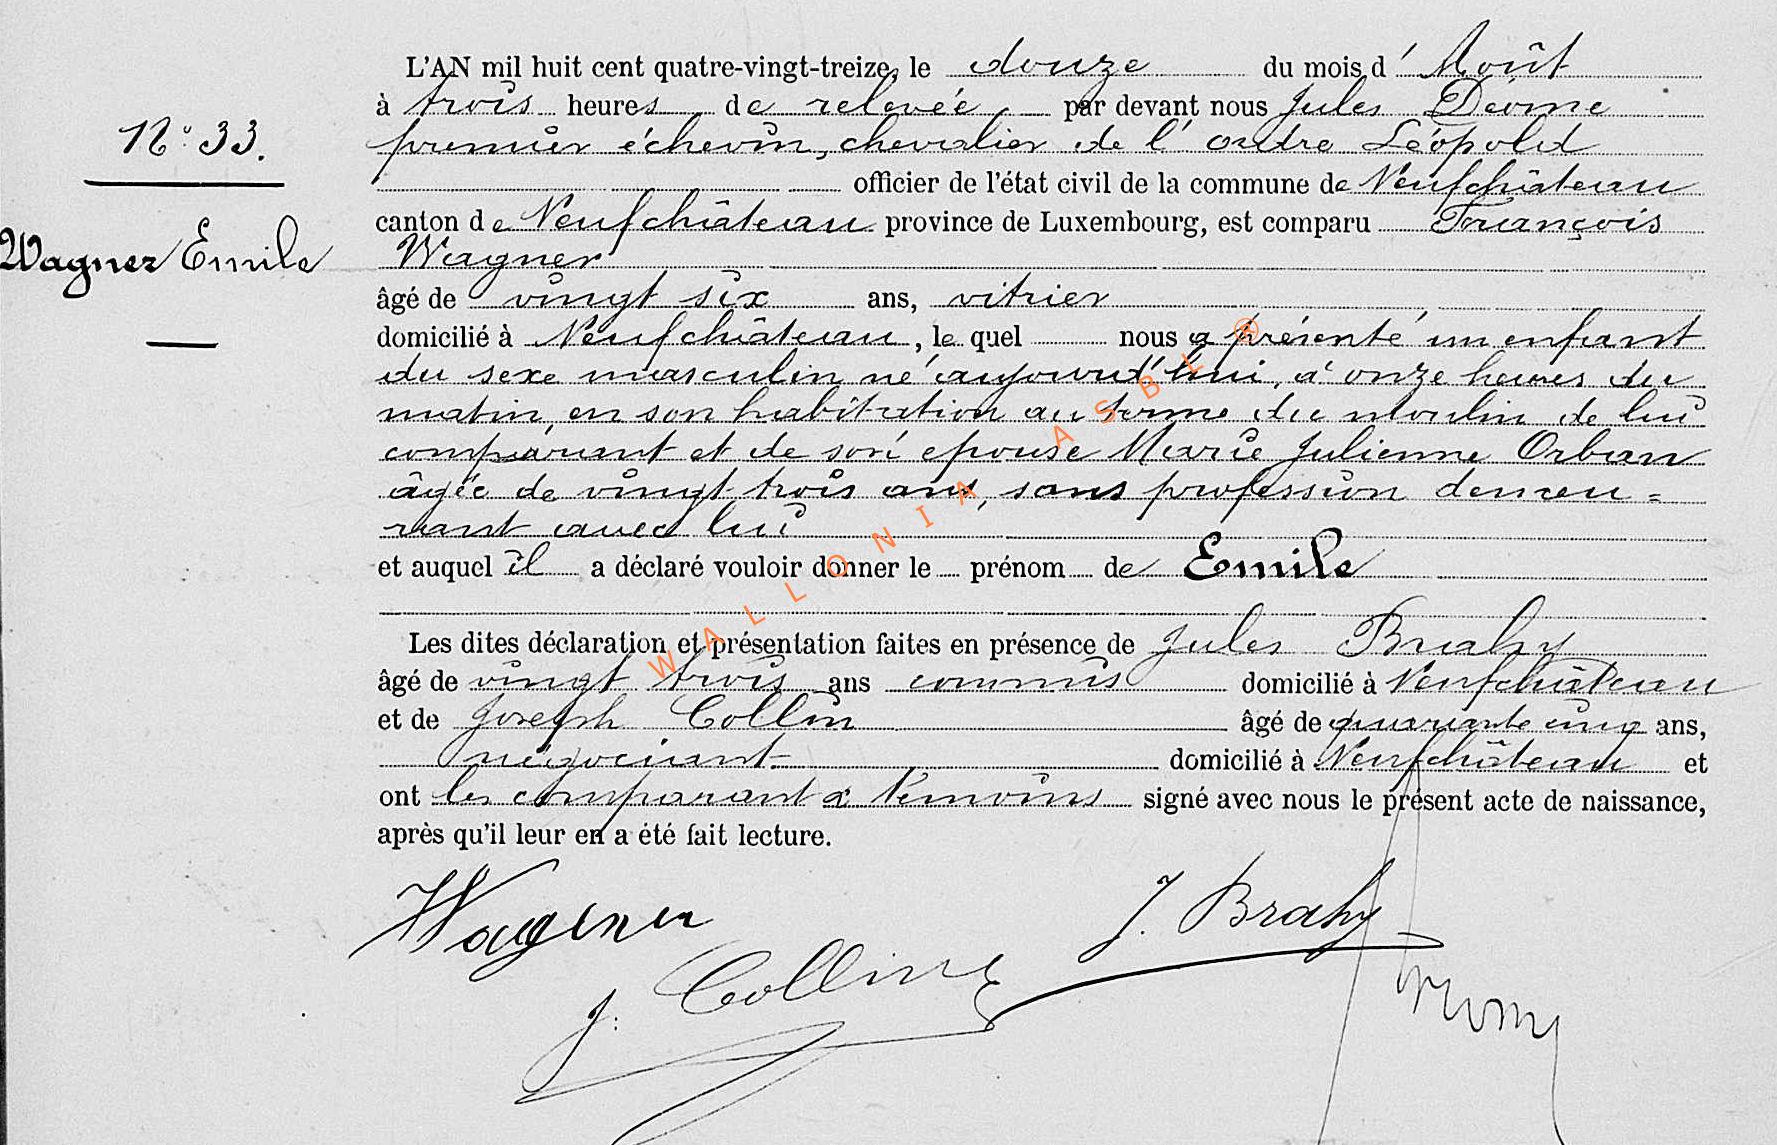 L'AN mil huit cent quatre-vingt-treize, le douze du mois d' Août
à trois heures de relevée par devant nous Jules
N° 33.
premier échevin, chevalier de l'ordre Léopold
officier de l'état civil de la commune de Neufchâteau
canton de Neufchâteau province de Luxembourg, est comparu François
Wagner Emile
Wagner
âgé de vingt six ans, vitrier
domicilié à Neufchâteau, le quel nous a présenté un enfant
du sexe masculin né aujourd'hui, à onze heures du
matin, en son habitation au terme du moulin de lui
comparant et de son épouse Marie Julienne Orban
âgée de vingt trois ans, sans profession demeu=
rant avec lui
et auquel il a déclaré vouloir donner le prénom de Emile
Les dites déclaration et présentation faites en présence de Jules Brahy
âgé de vingt trois ans commis domicilié à Neufchâteau
et de Joseph Collin âgé de quarante cinq ans,
négociant domicilié à Neufchâteau et
ont les comparant & témoins signé avec nous le présent acte de naissance,
après qu'il leur en a été fait lecture.
Wagener
J. Brahy
J: Collin
WALLONIA ASBL ®